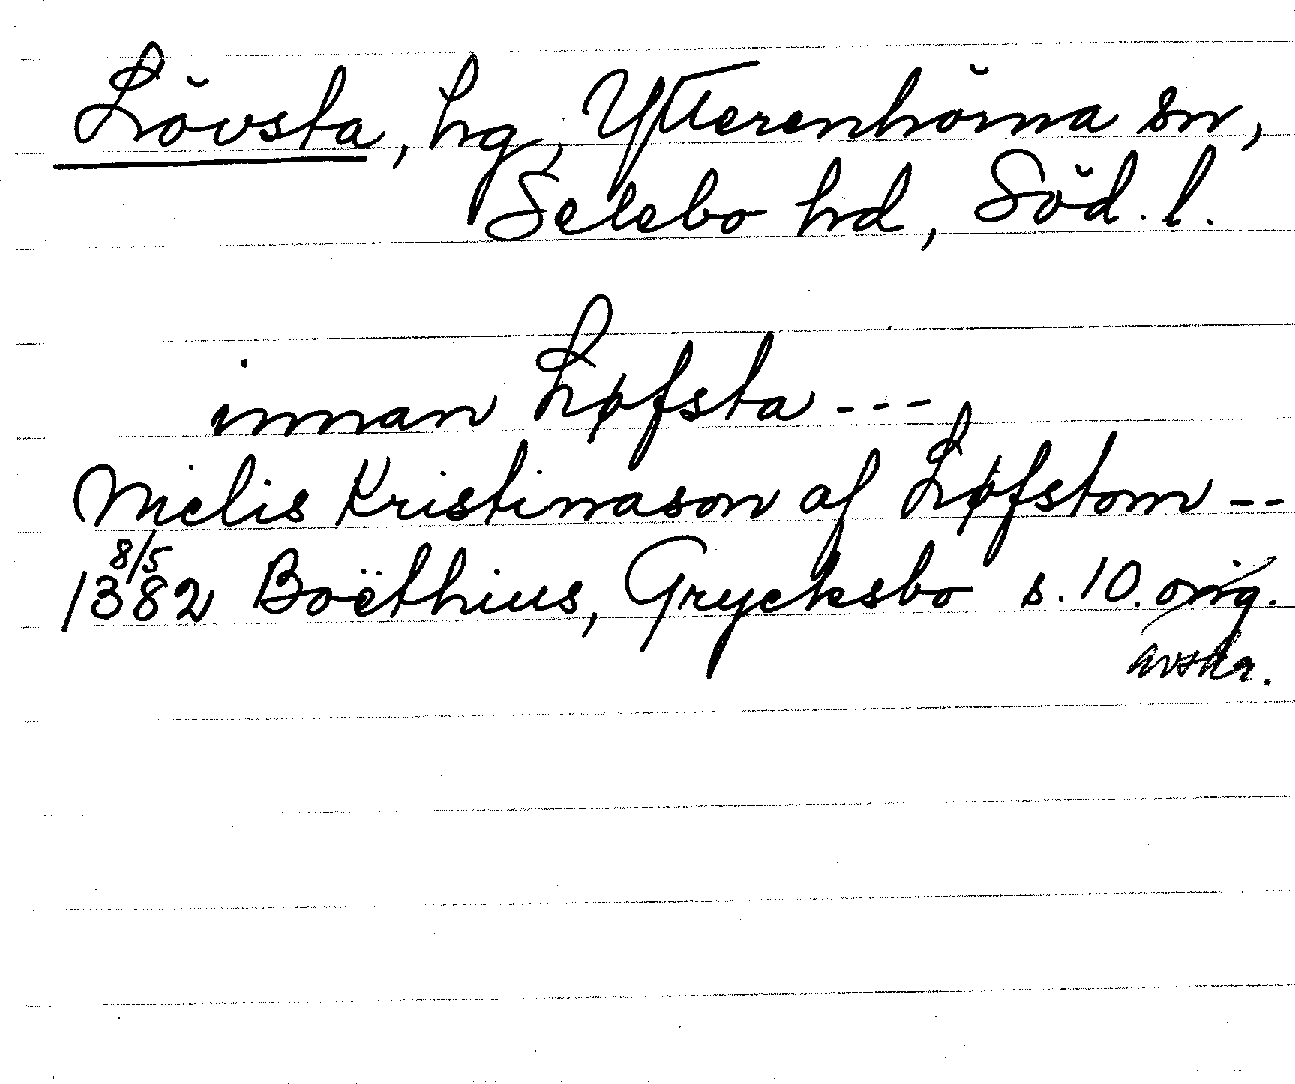 Lövsta, hg, Ytterenhörna sn,
Selebo hd, Söd. l.
innan Løfsta ---
Melis Kristinason af Løfstom --
1382 8/5 Boëthius, Grycksbo s. 10. orig.
avskr.